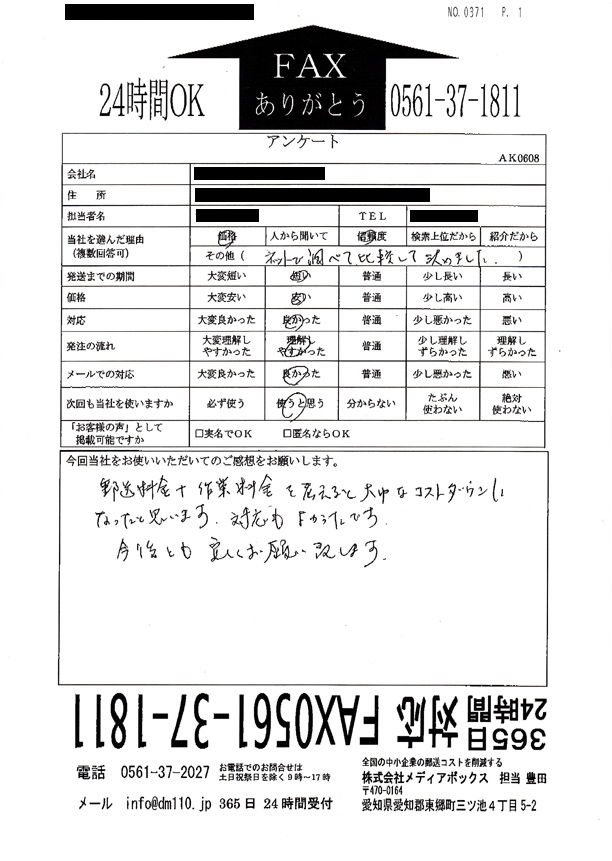 NO. 0371 P. 1
FAX
ありがとう
24時間OK
0561-37-1811
アンケート
AK0608
会社名
住 所
担当者名 TEL
当社を選んだ理由 価格 人から聞いて 信頼度 検索上位だから 紹介だから
(複数回答可) その他 ( ネットで調べて比較して決めました。 )
発送までの期間 大変短い 短い 普通 少し長い 長い
価格 大変安い 安い 普通 少し高い 高い
対応 大変良かった 良かった 普通 少し悪かった 悪い
発注の流れ 大変理解しやすかった 理解しやすかった 普通 少し理解しずらかった 理解しずらかった
メールでの対応 大変良かった 良かった 普通 少し悪かった 悪い
次回も当社を使いますか 必ず使う 使うと思う 分からない たぶん使わない 絶対使わない
「お客様の声」として
掲載可能ですか □実名でOK □匿名ならOK
今回当社をお使いいただいてのご感想をお願いします。
郵送料金+作業料金を考えると大巾なコストダウンに
なったと思います。対応もよかったです。
今後とも宜しくお願い致します。
365日 24時間 対応 FAX0561-37-1811
電話 0561-37-2027 お電話でのお問合せは
土日祝祭日を除く9~17時
メール info@dm110.jp 365日 24時間受付
全国の中小企業の郵送コストを削減する
株式会社メディアボックス 担当 豊田
〒470-0164
愛知県愛知郡東郷町三ツ池4丁目5-2